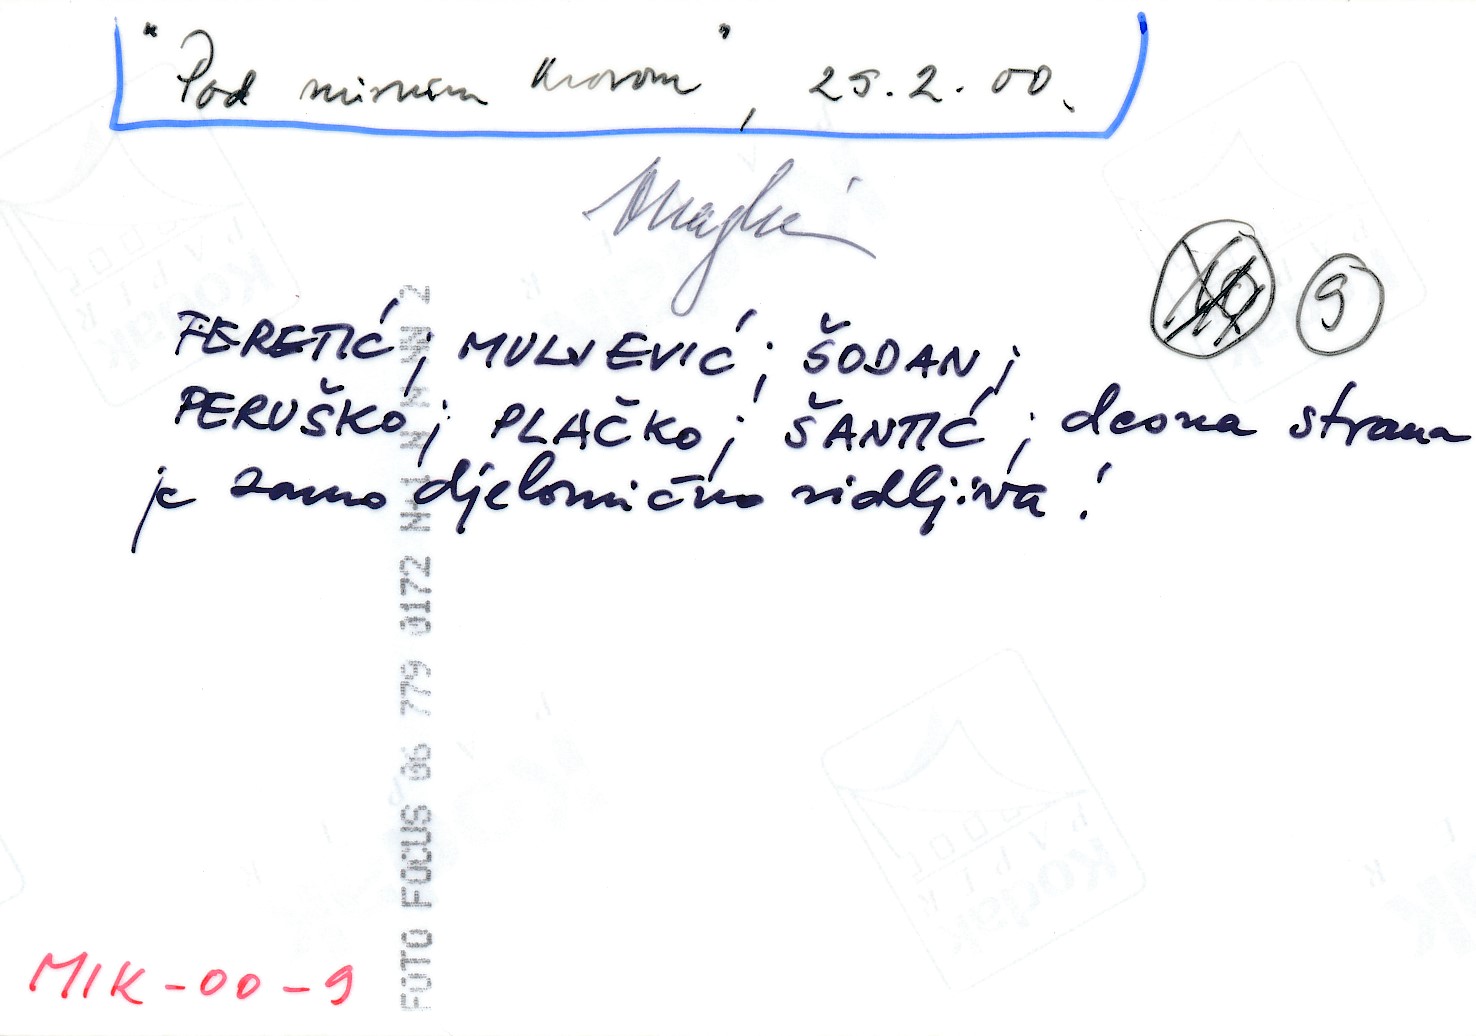 "Pod mirnim krovom", 25.2.00.
10 9
FERETIĆ; MULJEVIĆ; ŠODAN;
PERUŠKO; PLAČKO; ŠANTIĆ; desna strana
je samo djelomično vidljiva!
FOTO FOCUS 06 779 0172 N-1 N N NN 2
MIK-00-9